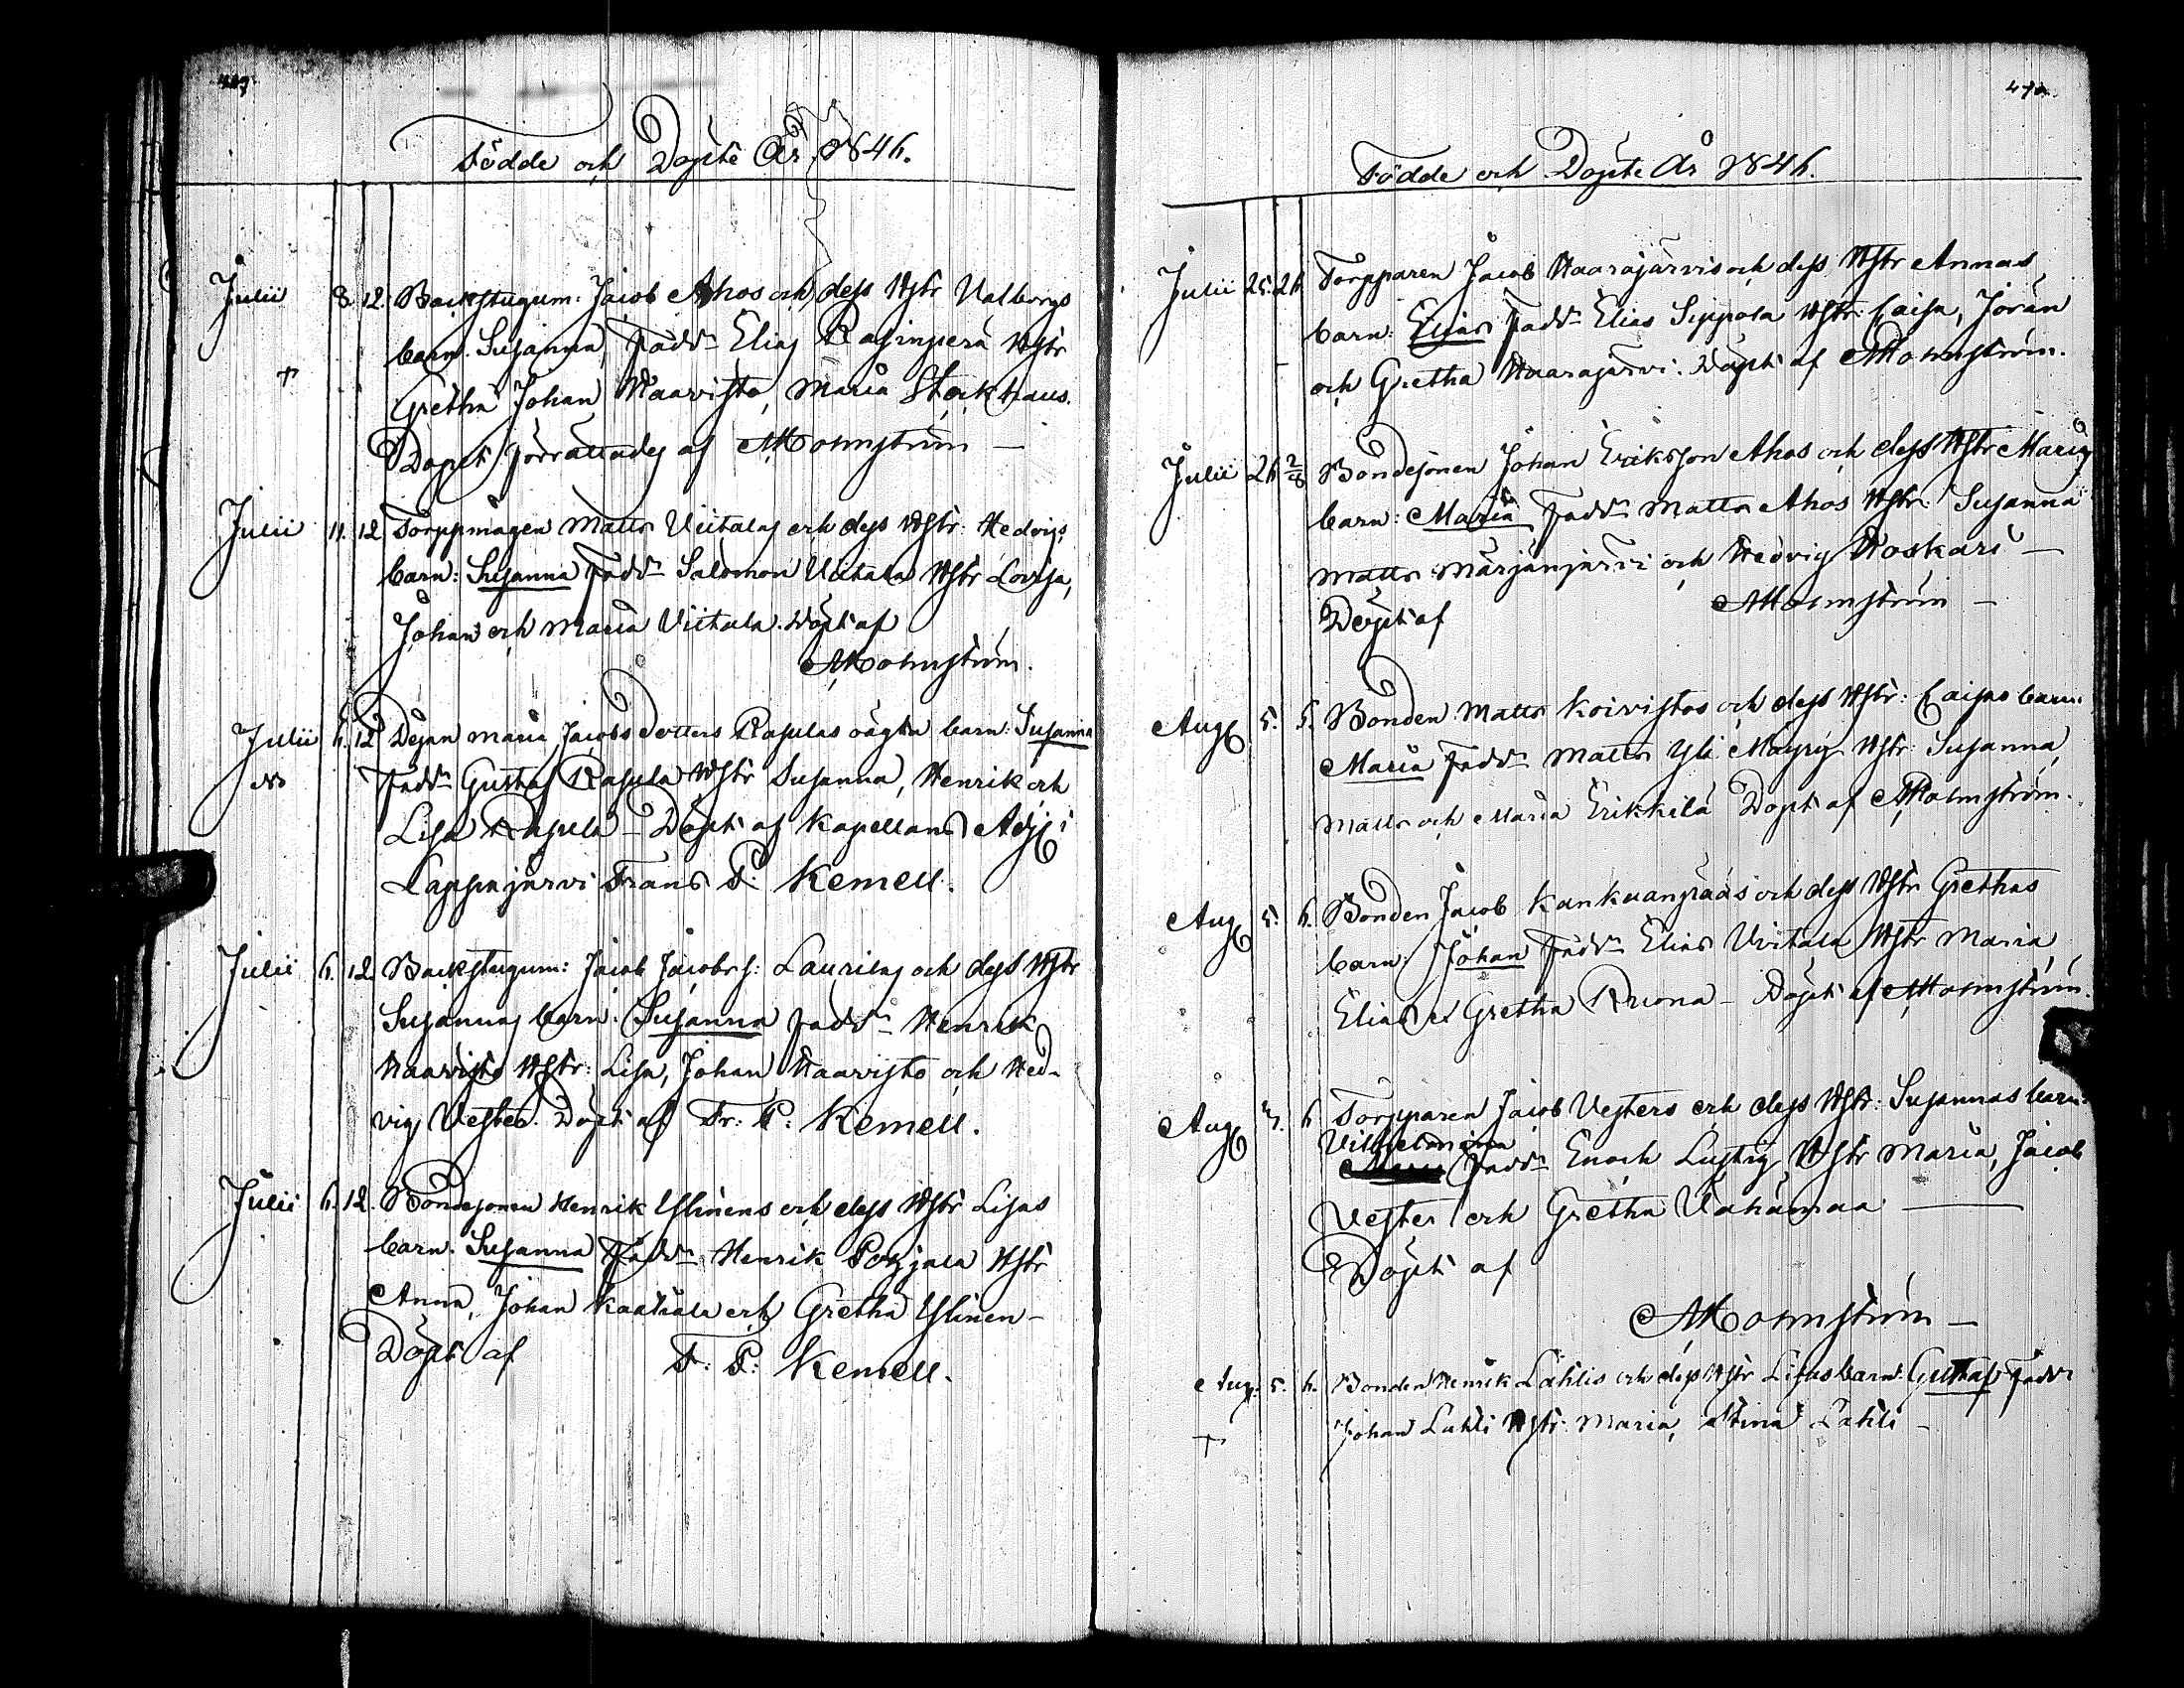 Födde och Döpte År 1846.
Julii 8. 12. Backstugum: Jacob Ahos och dess Hstr Valborgs
barn. Susanna, Fadd: Elias Pasinperä Hstr
† Gretha Johan Haavisto, Maria Stockhaus.
Dopet förrättades af AHolmström —
Julii 11. 12 Torppmågen Matts Viitalas och dess Hstr: Hedvigs
barn: Susanna Fadd: Salomon Viitala Hstr Lovisa,
Johan och Maria Viitala. Döpt af
AHolmström.
Julii 6. 12 Pigan Maria Jacobs Dotters Rapulas oägta barn: Susanna
Fadd: Gustaf Rapula Hstr Susanna, Henrik och
Lisa Rapula — Döpt af Kapellans Adj: i
Lappajärvi Frans P: Kemell.
Julii 6. 12. Backstugum: Jacob Jacobss: Laurilas och dess Hstr
Susannas barn: Susanna Fadd: Henrik
Haavisto Hstr: Lisa, Johan Haavisto och Hed-
vig Vester. Döpt af Fr: P: Kemell.
Julii 6. 12. Bondesonen Henrik Ylinens och dess Hstr Lisas
barn. Susanna Fadd: Henrik Pohjala Hstr
Anna, Johan Kaatiala och Gretha Ylinen —
Döpt af F: P: Kemell.
470.
Födde och Döpte År 1846.
Julii 25. 26 Torpparen Jacob Haarajärvis och dess Hstr Annas
barn: Elias Fadd: Elias Sippola Hstr: Caisa, Jöran
och Gretha Haarajärvi. Döpt af AHolmström.
Julii 26 2/8 Bondesonen Johan Eriksson Ahos och dess Hstr Marias
barn: Maria Fadd: Matts Ahos Hstr: Susanna
Matts Märjänjärvi och Hedvig Koskari —
Döpt af AHolmström —
Aug 5. 5. Bonden Matts Koivistos och dess Hstr: Caisas barn:
Maria Fadd: Matts Yli Mäyry Hstr: Susanna,
Matts och Maria Erikkilä Döpt af AHolmström.
Aug 5. 6. Bonden Jacob Kankaanpääs och dess Hstr Grethas
barn: Johan Fadd: Elias Viitala Hstr Maria
Elias o Gretha Ruona — Döpt af AHolmström.
Aug 3. 6 Torpparen Jacob Vesters och dess Hstr: Susannas barn:
Vilhelmina
Fadd: Enoch Lustig Hstr Maria, Jacob
Vester och Gretha Vähämaa —
Döpt af
AHolmström —
Aug: 5. 6. Bonden Henrik Lahtis och dess Hstr Lisas barn: Gustaf Fadd:
† Johan Lahti Hstr: Maria, Stina Lahti —